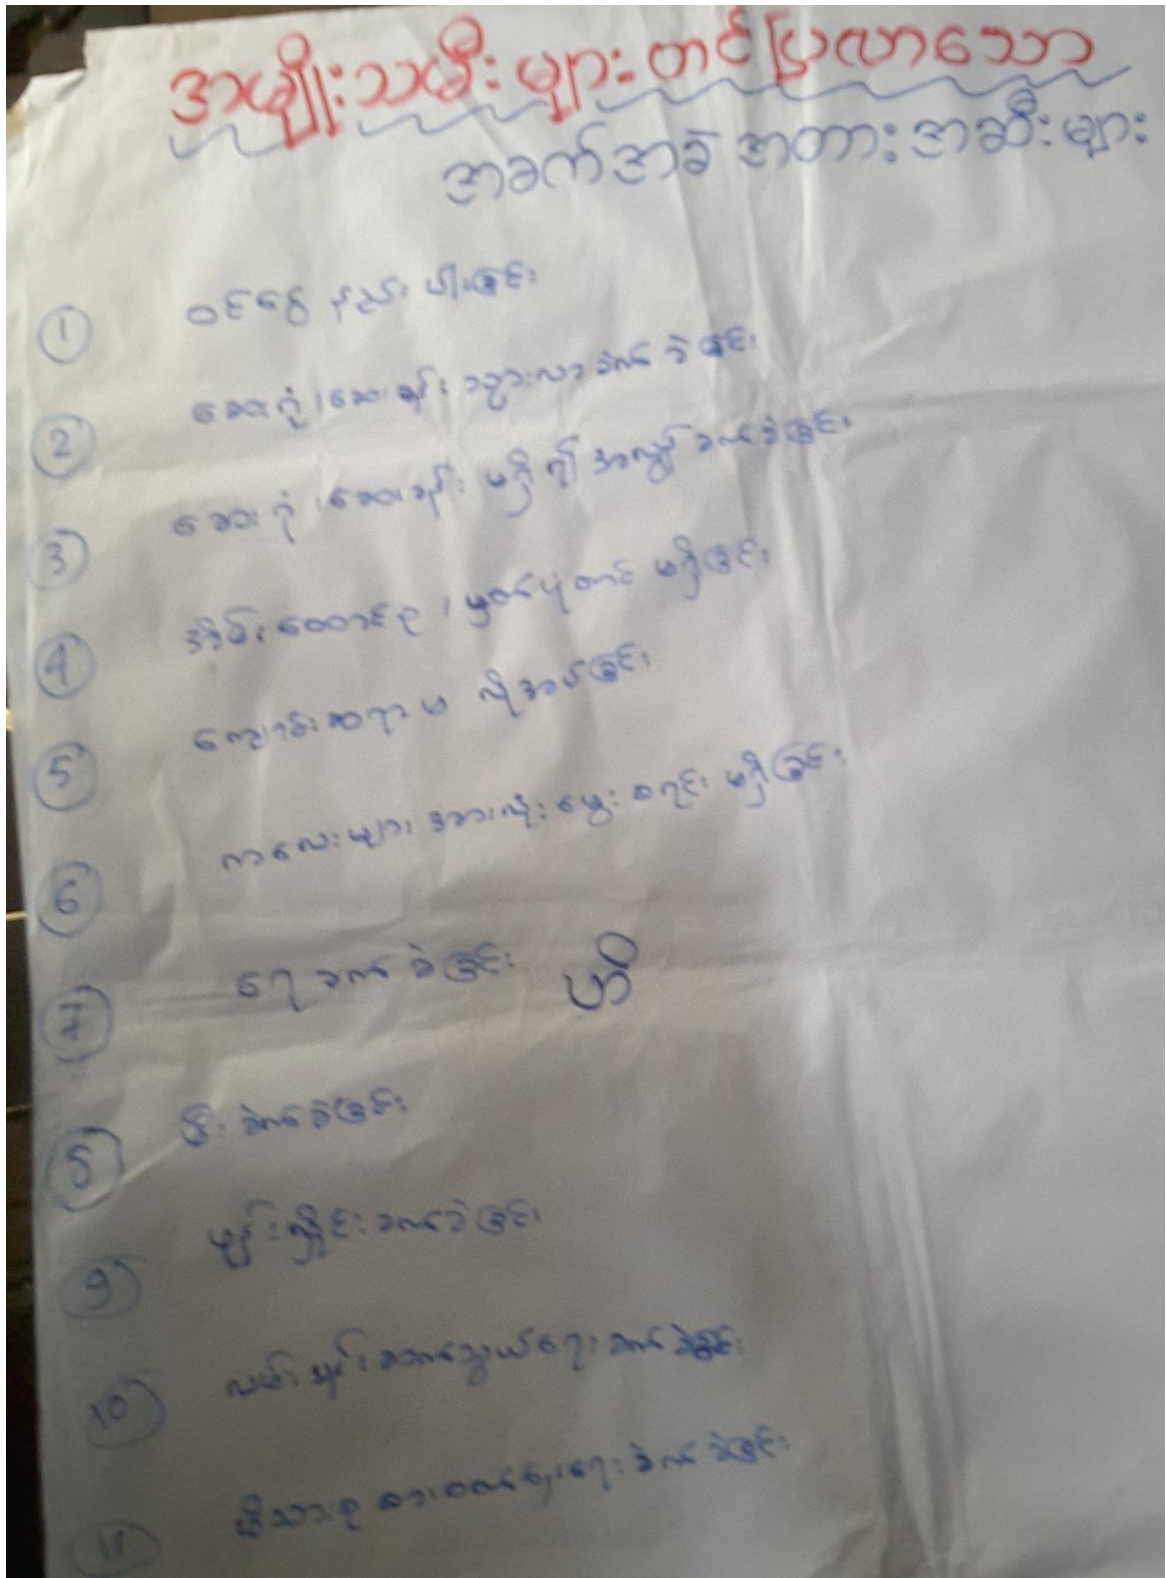 အမျိုးသမီးများတင်ပြလာသော
အခက်အခဲ အတားအဆီးများ
① ဝင်ငွေ နည်းပါးခြင်း
② ဆေးရုံ၊ ဆေးခန်း သွားလာ ခက်ခဲခြင်း
③ ဆေးရုံ၊ ဆေးခန်း မရှိ၍ အလွန် ခက်ခဲခြင်း
④ အိမ်ထောင်စု၊ မှတ်ပုံတင် မရှိခြင်း
⑤ ကျောင်းဆရာမ လိုအပ်ခြင်း
⑥ ကလေးများ အားလုံး မွေးစရင်း မရှိခြင်း
⑦ ရေ ခက်ခဲခြင်း
⑧ မီး ခက်ခဲခြင်း
⑨ ခက်ခဲခြင်း
⑩ လမ်းပန်း ဆက်သွယ်ရေး ခက်ခဲခြင်း
⑪ မိသားစု စားဝတ်နေရေး ခက်ခဲခြင်း